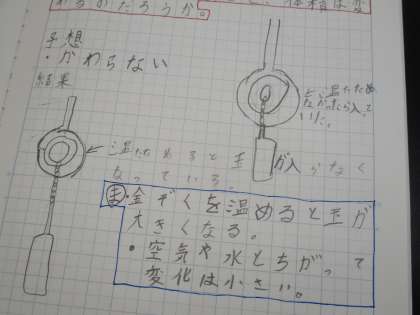 わるのだろうか。
体積は変
予想
・かわらない
結果
温ためると玉が入らなく
なっている。
ま・金ぞくを温めると玉が
大きくなる。
・空気や水とちがって
変化は小さい。